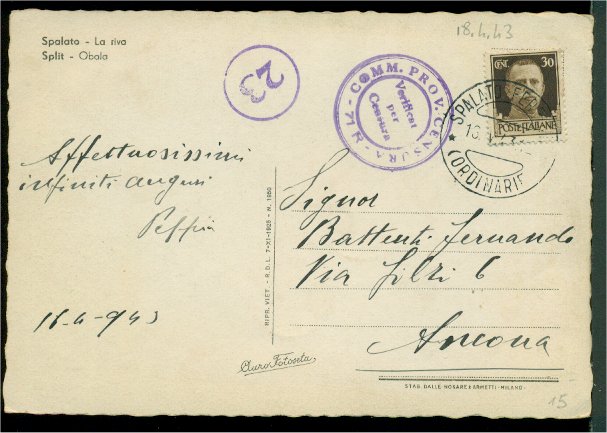 18.4.43
Spalato - La riva
Split - Obala
23
COMM. PROV. CENSURA - N 74 -
Verificat
per
Censura
CENT. 30
POSTE ITALIANE
SPALATO
(ORDINARIE
Affettuosissimi
infiniti auguri
16-4-943
Signor
Battenti Fernando
Via Filzi 6
Ancona
RIPR. VIET. - R.D.L. 7-XI-1925 - N. 1950
Auro Fotoseta
STAB. DALLE NOGARE E ARMETTI - MILANO
15